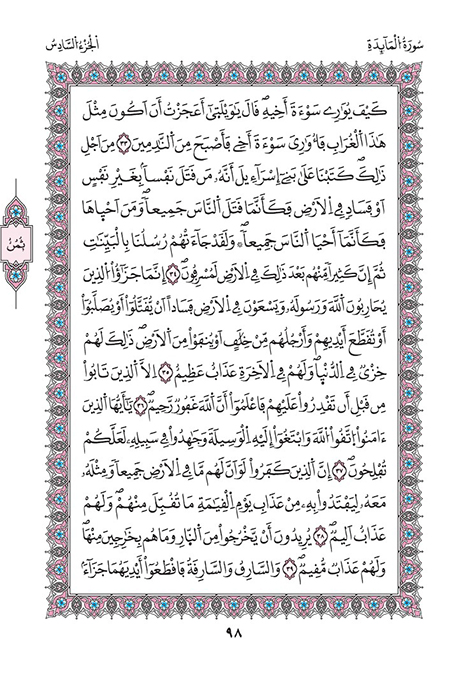 سُورَةُ الْمَائِدَةِ
الْجُزْءُ السَّادِسُ
كَيْفَ يُوَٰرِے سَوْءَةَ أَخِيهِۖ قَالَ يَٰوَيْلَتَىٰٓ أَعَجَزْتُ أَنَ اَكُونَ مِثْلَ
هَٰذَا اَلْغُرَابِ فَأُوَٰرِيَ سَوْءَةَ أَخِےۖ فَأَصْبَحَ مِنَ اَلنَّٰدِمِينَۖ ٣٣ مِنَ اَجْلِ
ذَٰلِكَۖ كَتَبْنَا عَلَىٰ بَنِےٓ إِسْرَآءِيلَ أَنَّهُۥ مَن قَتَلَ نَفْساَۢ بِغَيْرِ نَفْسٍ
اَوْ فَسَادٖ فِے اِلَارْضِ فَكَأَنَّمَا قَتَلَ اَلنَّاسَ جَمِيعاٗۖ وَمَنَ اَحْيَاهَا
فَكَأَنَّمَآ أَحْيَا اَلنَّاسَ جَمِيعاٗۖ وَلَقَدْ جَآءَتْهُمْ رُسُلُنَا بِالْبَيِّنَٰتِ
ثُمَّ إِنَّ كَثِيراٗ مِّنْهُم بَعْدَ ذَٰلِكَ فِے اِلَارْضِ لَمُسْرِفُونَۖ ٣٤ إِنَّمَا جَزَٰٓؤُاْ اُلذِينَ
يُحَارِبُونَ اَللَّهَ وَرَسُولَهُۥ وَيَسْعَوْنَ فِے اِلَارْضِ فَسَاداً اَنْ يُّقَتَّلُوٓاْ أَوْ يُصَلَّبُوٓاْ
أَوْ تُقَطَّعَ أَيْدِيهِمْ وَأَرْجُلُهُم مِّنْ خِلَٰفٍ اَوْ يُنفَوْاْ مِنَ اَلَارْضِۖ ذَٰلِكَ لَهُمْ
خِزْيٞ فِے اِلدُّنْي۪اۖ وَلَهُمْ فِے اِلَاخِرَةِ عَذَابٌ عَظِيمٌ ٣٥ اِلَّا اَلذِينَ تَابُواْ
مِن قَبْلِ أَن تَقْدِرُواْ عَلَيْهِمْۖ فَاعْلَمُوٓاْ أَنَّ اَللَّهَ غَفُورٞ رَّحِيمٞۖ ٣٦ يَٰٓأَيُّهَا اَلذِينَ
ءَامَنُواْ اُتَّقُواْ اُللَّهَ وَابْتَغُوٓاْ إِلَيْهِ اِلْوَسِيلَةَ وَجَٰهِدُواْ فِے سَبِيلِهِۦ لَعَلَّكُمْ
تُفْلِحُونَۖ ٣٧ إِنَّ اَلذِينَ كَفَرُواْ لَوَ اَنَّ لَهُم مَّا فِے اِلَارْضِ جَمِيعاٗ وَمِثْلَهُۥ
مَعَهُۥ لِيَفْتَدُواْ بِهِۦ مِنْ عَذَابِ يَوْمِ اِلْقِيَٰمَةِ مَا تُقُبِّلَ مِنْهُمْۖ وَلَهُمْ
عَذَابٌ اَلِيمٞۖ ٣٨ يُرِيدُونَ أَنْ يَّخْرُجُواْ مِنَ اَلنّ۪ارِ وَمَا هُم بِخَٰرِجِينَ مِنْهَاۖ
وَلَهُمْ عَذَابٞ مُّقِيمٞۖ ٣٩ وَالسَّارِقُ وَالسَّارِقَةُ فَاقْطَعُوٓاْ أَيْدِيَهُمَا جَزَآءَۢ
ثُمُنُ
٩٨